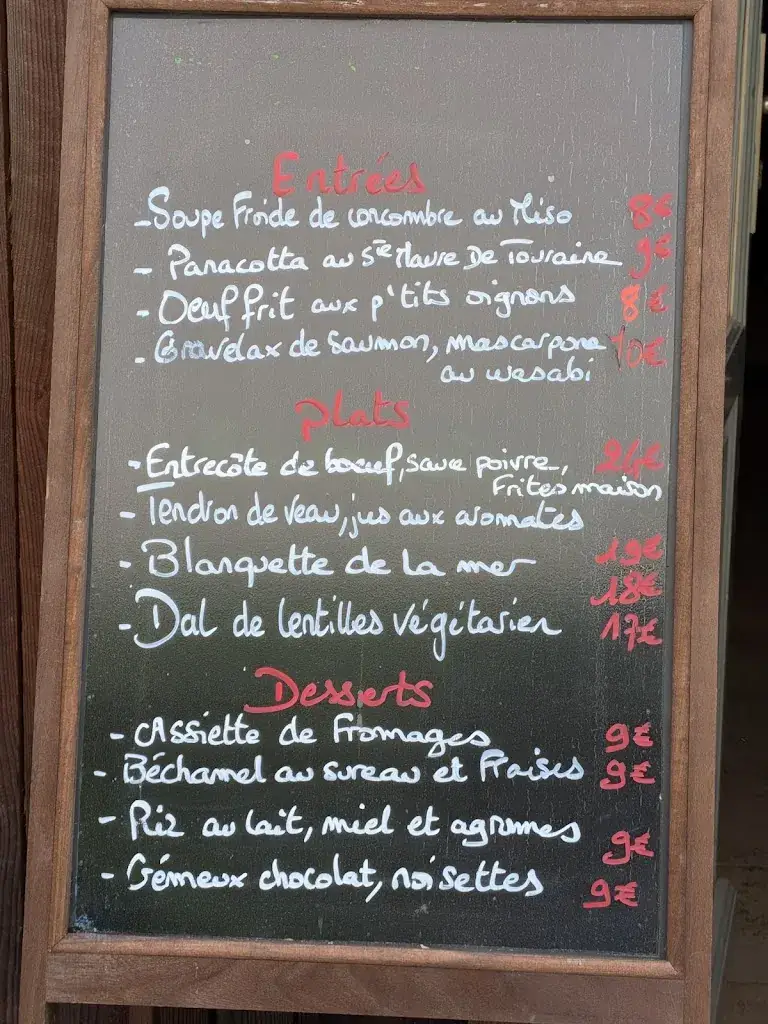 Entrées
- Soupe Froide de concombre au Miso 8€
- Panacotta au Ste Maure De Touraine 9€
- Oeuf frit aux p'tits oignons 8€
- Gravelax de Saumon, mascarpone 10€
au wasabi
Plats
- Entrecôte de boeuf, sauce poivre, 24€
Frites maison
- Tendron de veau, jus aux aromates 19€
- Blanquette de la mer 18€
- Dal de lentilles végétarien 17€
Desserts
- Assiette de Fromages 9€
- Béchamel au sureau et Fraises 9€
- Riz au lait, miel et agrumes 9€
- Crémeux chocolat, noisettes 9€